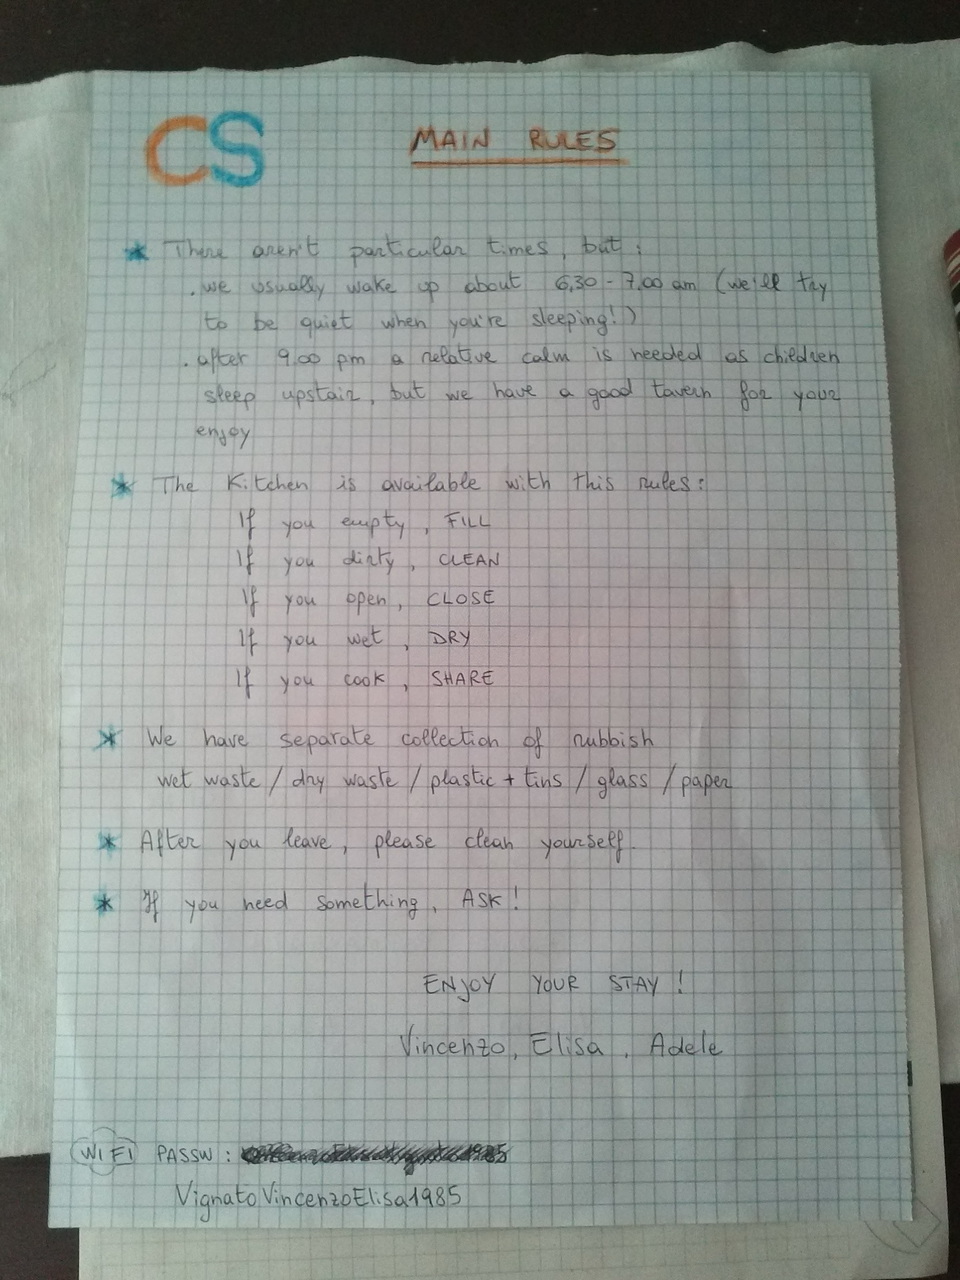 CS MAIN RULES
* There aren't particular times, but :
. we usually wake up about 6,30 - 7,00 am (we'll try
to be quiet when you're sleeping!)
. after 9.00 pm a relative calm is needed as children
sleep upstair, but we have a good tavern for your
enjoy
* The Kitchen is available with this rules:
If you empty, FILL
If you dirty, CLEAN
If you open, CLOSE
If you wet, DRY
If you cook, SHARE
* We have separate collection of rubbish
wet waste / dry waste / plastic + tins / glass / paper
* After you leave, please clean yourself.
* If you need something, ASK!
ENJOY YOUR STAY!
Vincenzo, Elisa, Adele
WIFI PASSW :
VignatoVincenzoElisa1985